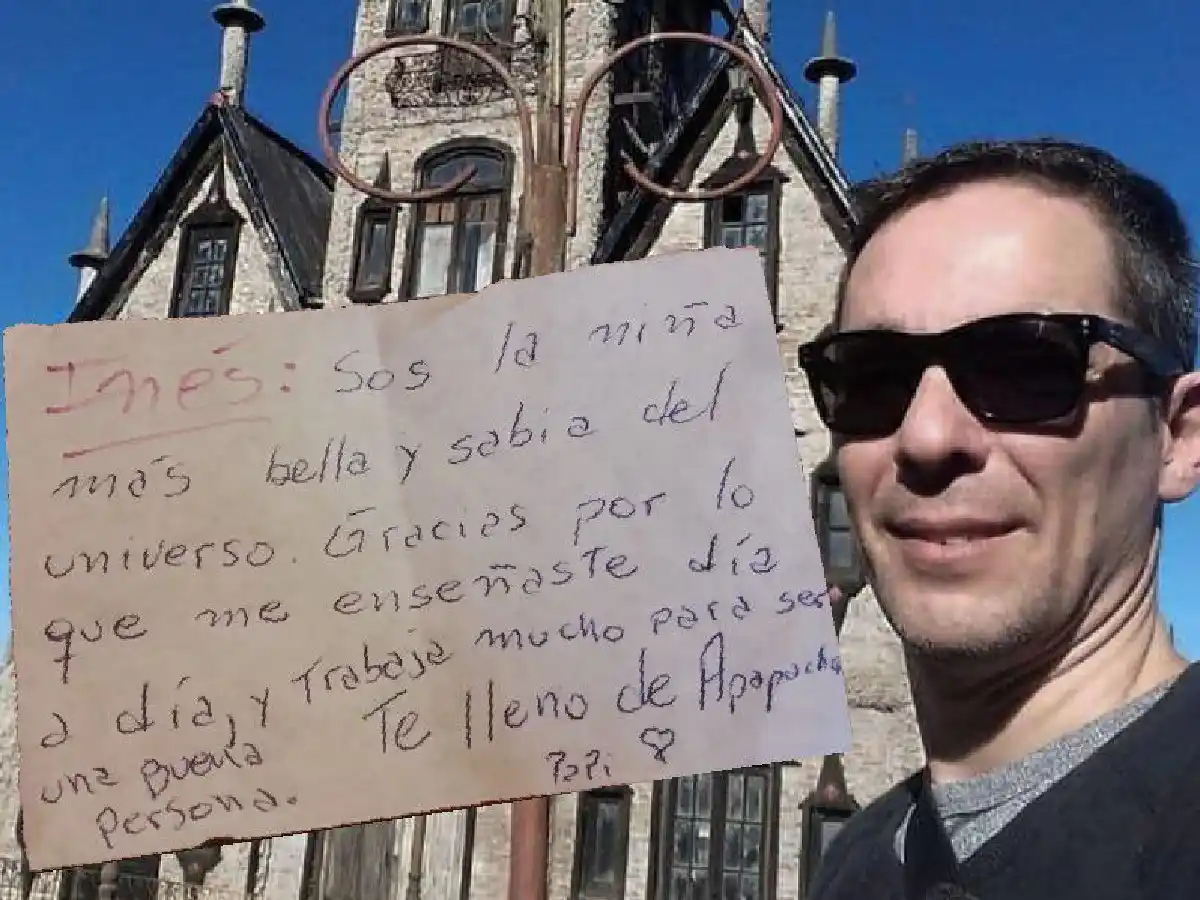 Inés: Sos la niña
más bella y sabia del
universo. Gracias por lo
que me enseñaste día
a día, y Trabaja mucho para ser
una buena
persona.
Te lleno de Apapachos
Papi